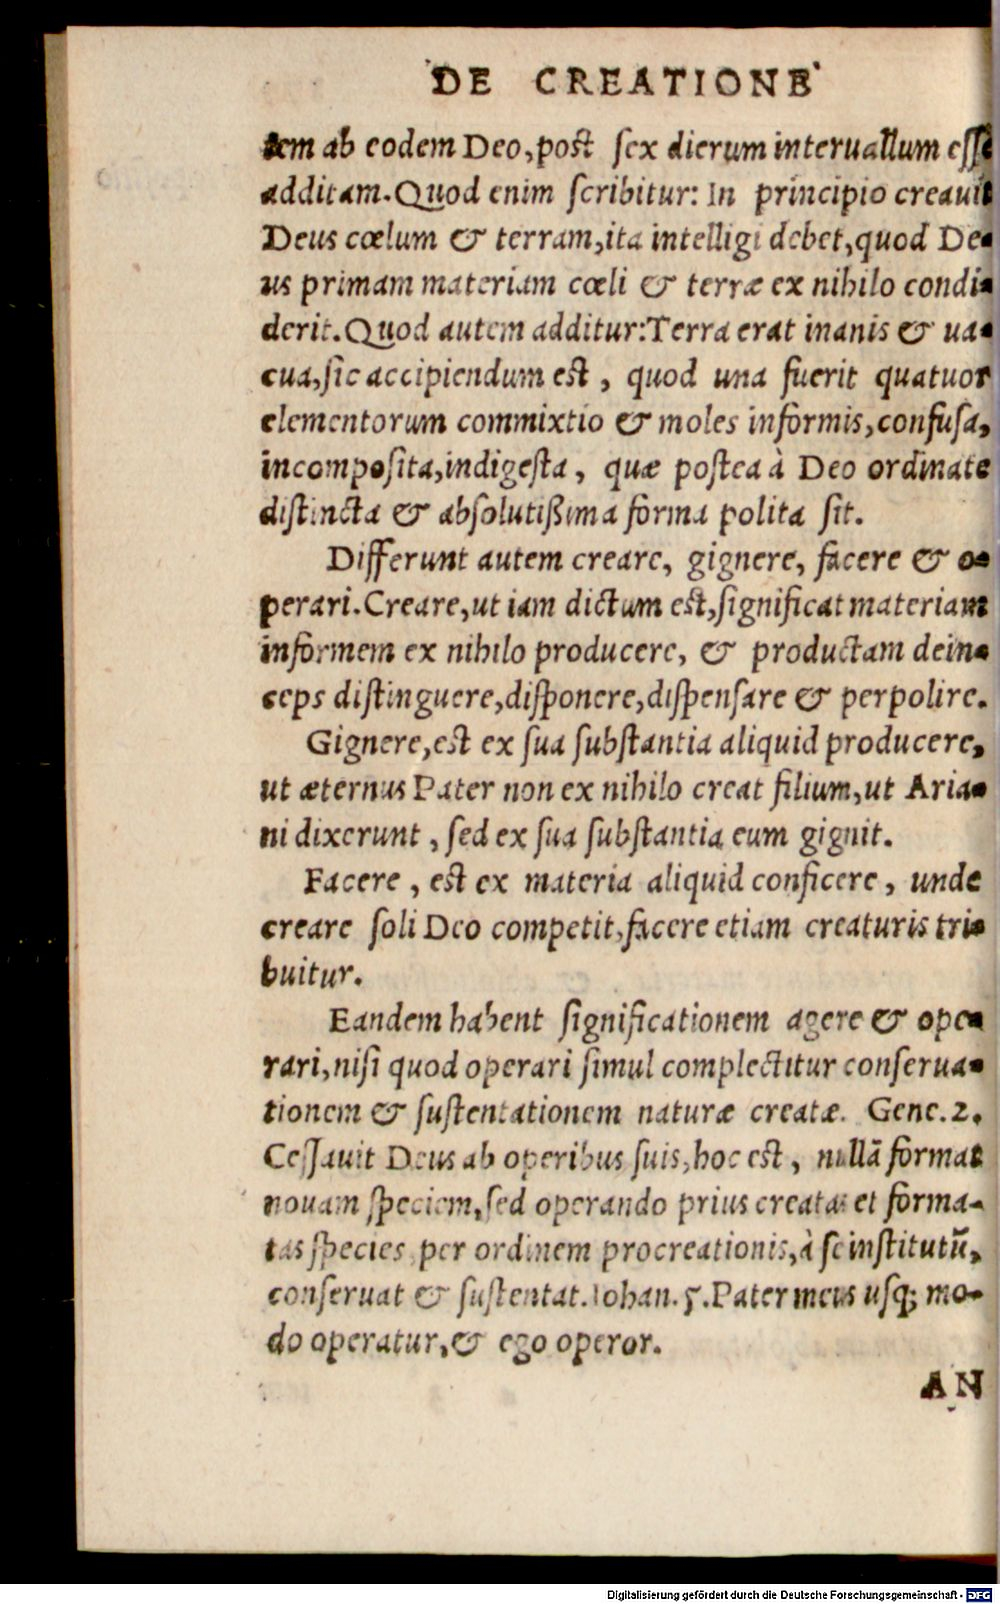 DE CREATIONE
tem ab eodem Deo, post sex dierum interuallum esse
additam. Quod enim scribitur: In principio creauit
Deus cœlum & terram, ita intelligi debet, quod De-
us primam materiam cœli & terræ ex nihilo condi-
derit. Quod autem additur: Terra erat inanis & ua-
cua, sic accipiendum est, quod una fuerit quatuor
elementorum commixtio & moles informis, confusa,
incomposita, indigesta, quæ postea à Deo ordinate
distincta & absolutißima forma polita sit.
Differunt autem creare, gignere, facere & o-
perari. Creare, ut iam dictum est, significat materiam
informem ex nihilo producere, & productam dein-
ceps distinguere, disponere, dispensare & perpolire.
Gignere, est ex sua substantia aliquid producere,
ut æternus Pater non ex nihilo creat filium, ut Aria-
ni dixerunt, sed ex sua substantia eum gignit.
Facere, est ex materia aliquid conficere, unde
creare soli Deo competit, facere etiam creaturis tri-
buitur.
Eandem habent significationem agere & ope-
rari, nisi quod operari simul complectitur conserua-
tionem & sustentationem naturæ creatæ. Gene. 2.
Cessauit Deus ab operibus suis, hoc est, nullā format
nouam speciem, sed operando prius creatas et forma-
tas species per ordinem procreationis, à se institutū,
conseruat & sustentat. Iohan. 5. Pater meus usq; mo-
do operatur, & ego operor.
AN
Digitalisierung gefördert durch die Deutsche Forschungsgemeinschaft - DFG